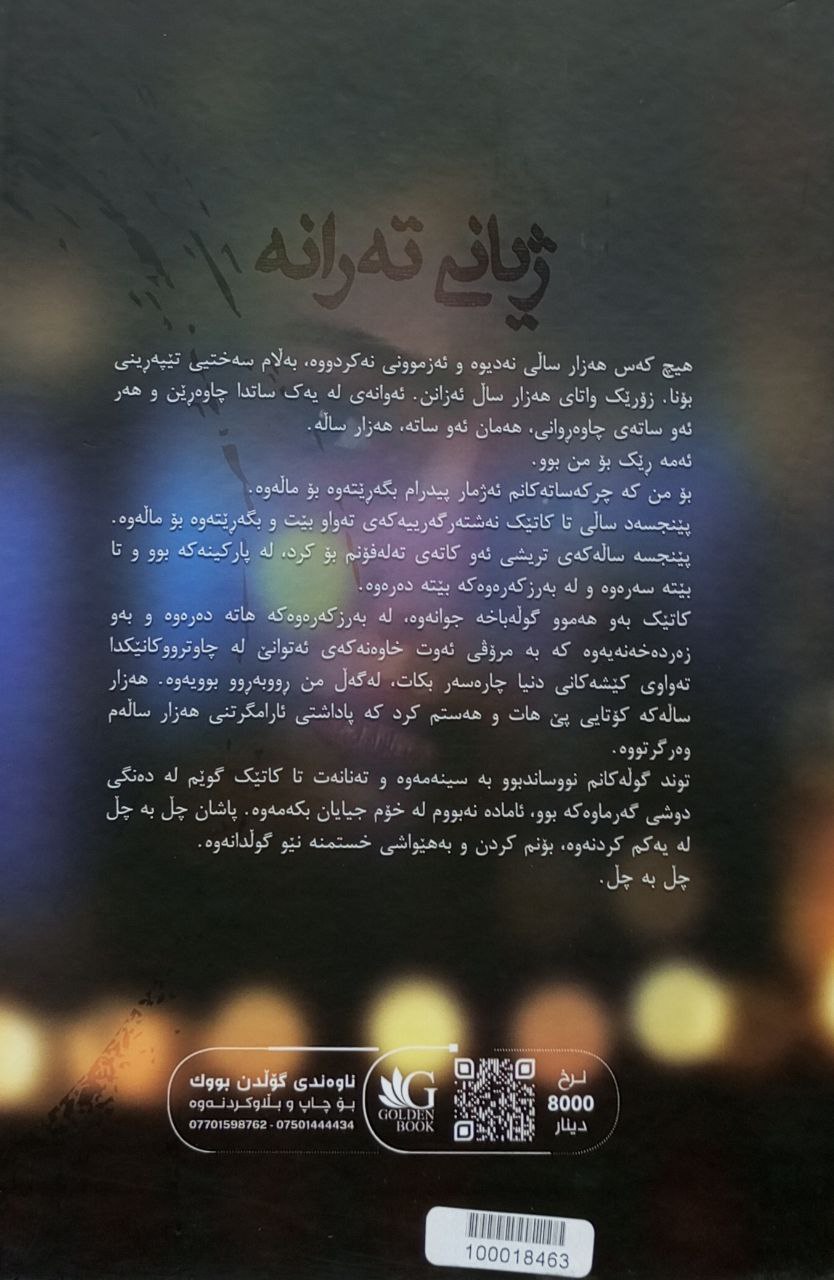 ژیانی تەرانە
هیچ کەس هەزار ساڵی نەدیوە و ئەزموونی نەکردووە، بەڵام سەختیی تێپەڕینی
بۆنا. زۆرێک واتای هەزار ساڵ ئەزانن. ئەوانەی لە یەک ساتدا چاوەڕێن و هەر
ئەو ساتەی چاوەڕوانی، هەمان ئەو ساتە، هەزار ساڵە.
ئەمە ڕێک بۆ من بوو.
بۆ من کە چرکەساتەکانم ئەژمار پیدرام بگەڕێتەوە بۆ ماڵەوە.
پێنجسەد ساڵی تا کاتێک نەشتەرگەرییەکەی تەواو بێت و بگەڕێتەوە بۆ ماڵەوە.
پێنجسە ساڵەکەی تریشی ئەو کاتەی تەلەفۆنم بۆ کرد، لە پارکینەکە بوو و تا
بێتە سەرەوە و لە بەرزکەرەوەکە بێتە دەرەوە.
کاتێک بەو هەموو گوڵەباخە جوانەوە، لە بەرزکەرەوەکە هاتە دەرەوە و بەو
زەردەخەنەیەوە کە بە مرۆڤی ئەوت خاوەنەکەی ئەتوانێ لە چاوترووکانێکدا
تەواوی کێشەکانی دنیا چارەسەر بکات، لەگەڵ من ڕووبەڕوو بوویەوە. هەزار
ساڵەکە کۆتایی پێ هات و هەستم کرد کە پاداشتی ئارامگرتنی هەزار ساڵەم
وەرگرتووە.
توند گوڵەکانم نووساندبوو بە سینەمەوە و تەنانەت تا کاتێک گوێم لە دەنگی
دوشی گەرماوەکە بوو، ئامادە نەبووم لە خۆم جیایان بکەمەوە. پاشان چڵ بە چڵ
لە یەکم کردنەوە، بۆنم کردن و بەهێواشی خستمنە نێو گوڵدانەوە.
چڵ بە چڵ.
نرخ
8000
دینار
GOLDEN
BOOK
ناوەندی گۆڵدن بووک
بۆ چاپ و بڵاوکردنەوە
07701598762 - 07501444434
100018463